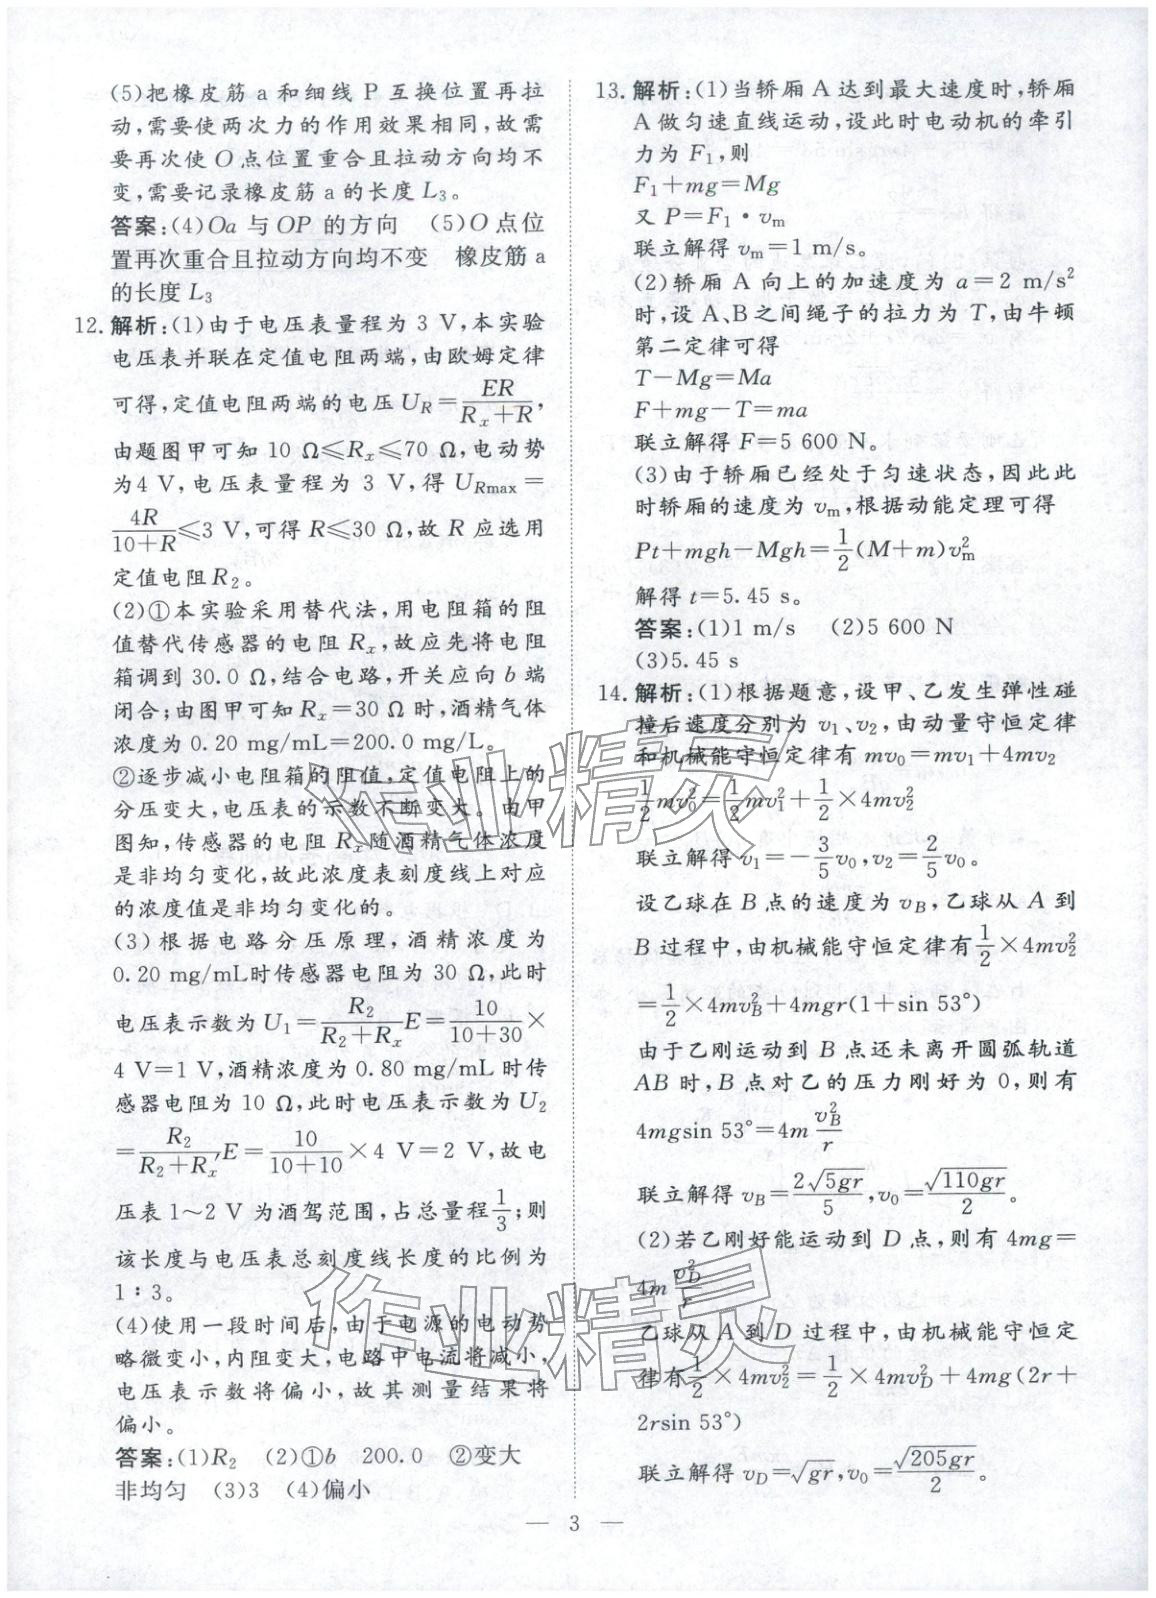 (5)把橡皮筋 a 和细线 P 互换位置再拉
动,需要使两次力的作用效果相同,故需
要再次使 O 点位置重合且拉动方向均不
变,需要记录橡皮筋 a 的长度 L₃。
答案:(4)Oa 与 OP 的方向 (5)O 点位
置再次重合且拉动方向均不变 橡皮筋 a
的长度 L₃
12. 解析:(1)由于电压表量程为 3 V,本实验
电压表并联在定值电阻两端,由欧姆定律
可得,定值电阻两端的电压 U_R=ER/(Rₓ+R),
由题图甲可知 10 Ω≤Rₓ≤70 Ω,电动势
为4 V,电压表量程为 3 V,得 U_Rmax=
4R/(10+R)≤3 V,可得 R≤30 Ω,故 R 应选用
定值电阻R₂。
(2)①本实验采用替代法,用电阻箱的阻
值替代传感器的电阻 Rₓ,故应先将电阻
箱调到 30.0 Ω,结合电路,开关应向 b 端
闭合;由图甲可知Rₓ=30 Ω 时,酒精气体
浓度为 0.20 mg/mL=200.0 mg/L。
②逐步减小电阻箱的阻值,定值电阻上的
分压变大,电压表的示数不断变大。由甲
图知,传感器的电阻 Rₓ随酒精气体浓度
是非均匀变化,故此浓度表刻度线上对应
的浓度值是非均匀变化的。
(3)根据电路分压原理,酒精浓度为
0.20 mg/mL时传感器电阻为 30 Ω,此时
电压表示数为 U₁=R₂/(R₂+Rₓ)E=10/(10+30)×
4 V=1 V,酒精浓度为 0.80 mg/mL 时传
感器电阻为 10 Ω,此时电压表示数为 U₂
=R₂/(R₂+Rₓ′)E=10/(10+10)×4 V=2 V,故电
压表 1～2 V 为酒驾范围,占总量程1/3;则
该长度与电压表总刻度线长度的比例为
1∶3。
(4)使用一段时间后,由于电源的电动势
略微变小,内阻变大,电路中电流将减小,
电压表示数将偏小,故其测量结果将
偏小。
答案:(1)R₂ (2)①b 200.0 ②变大
非均匀 (3)3 (4)偏小
13. 解析:(1)当轿厢 A 达到最大速度时,轿厢
A 做匀速直线运动,设此时电动机的牵引
力为 F₁,则
F₁+mg=Mg
又 P=F₁·vₘ
联立解得 vₘ=1 m/s。
(2)轿厢 A 向上的加速度为 a=2 m/s²
时,设 A、B 之间绳子的拉力为 T,由牛顿
第二定律可得
T-Mg=Ma
F+mg-T=ma
联立解得 F=5 600 N。
(3)由于轿厢已经处于匀速状态,因此此
时轿厢的速度为 vₘ,根据动能定理可得
Pt+mgh-Mgh=1/2(M+m)vₘ²
解得 t=5.45 s。
答案:(1)1 m/s (2)5 600 N
(3)5.45 s
14. 解析:(1)根据题意,设甲、乙发生弹性碰
撞后速度分别为 v₁、v₂,由动量守恒定律
和机械能守恒定律有 mv₀=mv₁+4mv₂
1/2mv₀²=1/2mv₁²+1/2×4mv₂²
联立解得 v₁=-3/5v₀,v₂=2/5v₀。
设乙球在 B 点的速度为 v_B,乙球从 A 到
B 过程中,由机械能守恒定律有1/2×4mv₂²
=1/2×4mv_B²+4mgr(1+sin 53°)
由于乙刚运动到 B 点还未离开圆弧轨道
AB 时,B 点对乙的压力刚好为 0,则有
4mgsin 53°=4m v_B²/r
联立解得 v_B=2√(5gr)/5,v₀=√(110gr)/2。
(2)若乙刚好能运动到 D 点,则有 4mg=
4m v_D²/r
乙球从 A 到 D 过程中,由机械能守恒定
律有1/2×4mv₂²=1/2×4mv_D²+4mg(2r+
2rsin 53°)
联立解得 v_D=√(gr),v₀=√(205gr)/2。
— 3 —
作业精灵
作业精灵